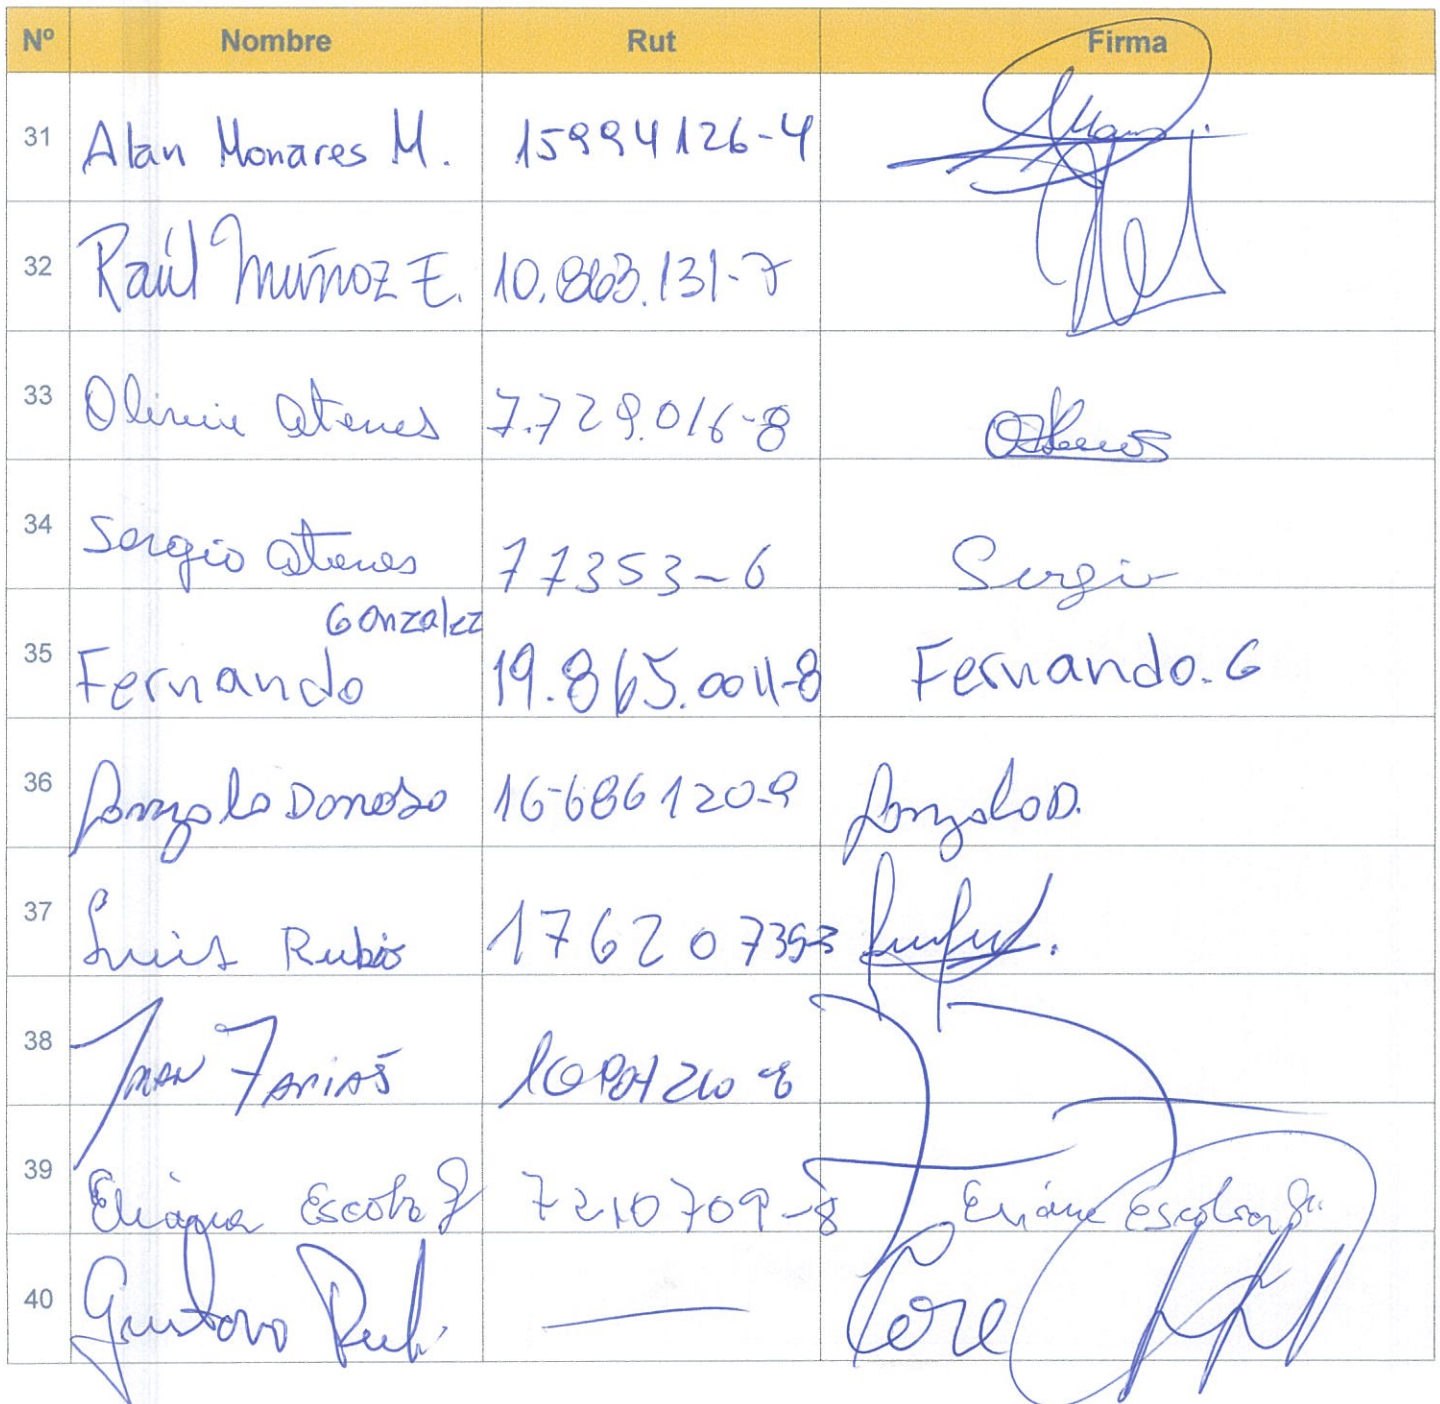 Nº Nombre Rut Firma
31 Alan Monares M. 15994126-4
32 Raúl Muñoz E. 10.863.131-7
33 Olivia Atenas 7.729.016-8 Atenas
34 Sergio Atenas 77353-6 Sergio
Gonzalez
35 Fernando 19.865.0011-8 Fernando. G
36 Gonzalo Donoso 16-686120-9 Gonzalo D.
37 Luis Rubio 176207393-3
38 Juan Farias
39 Eliana Escobar 7210709-8 Eliana Escobar
40 Gustavo Core